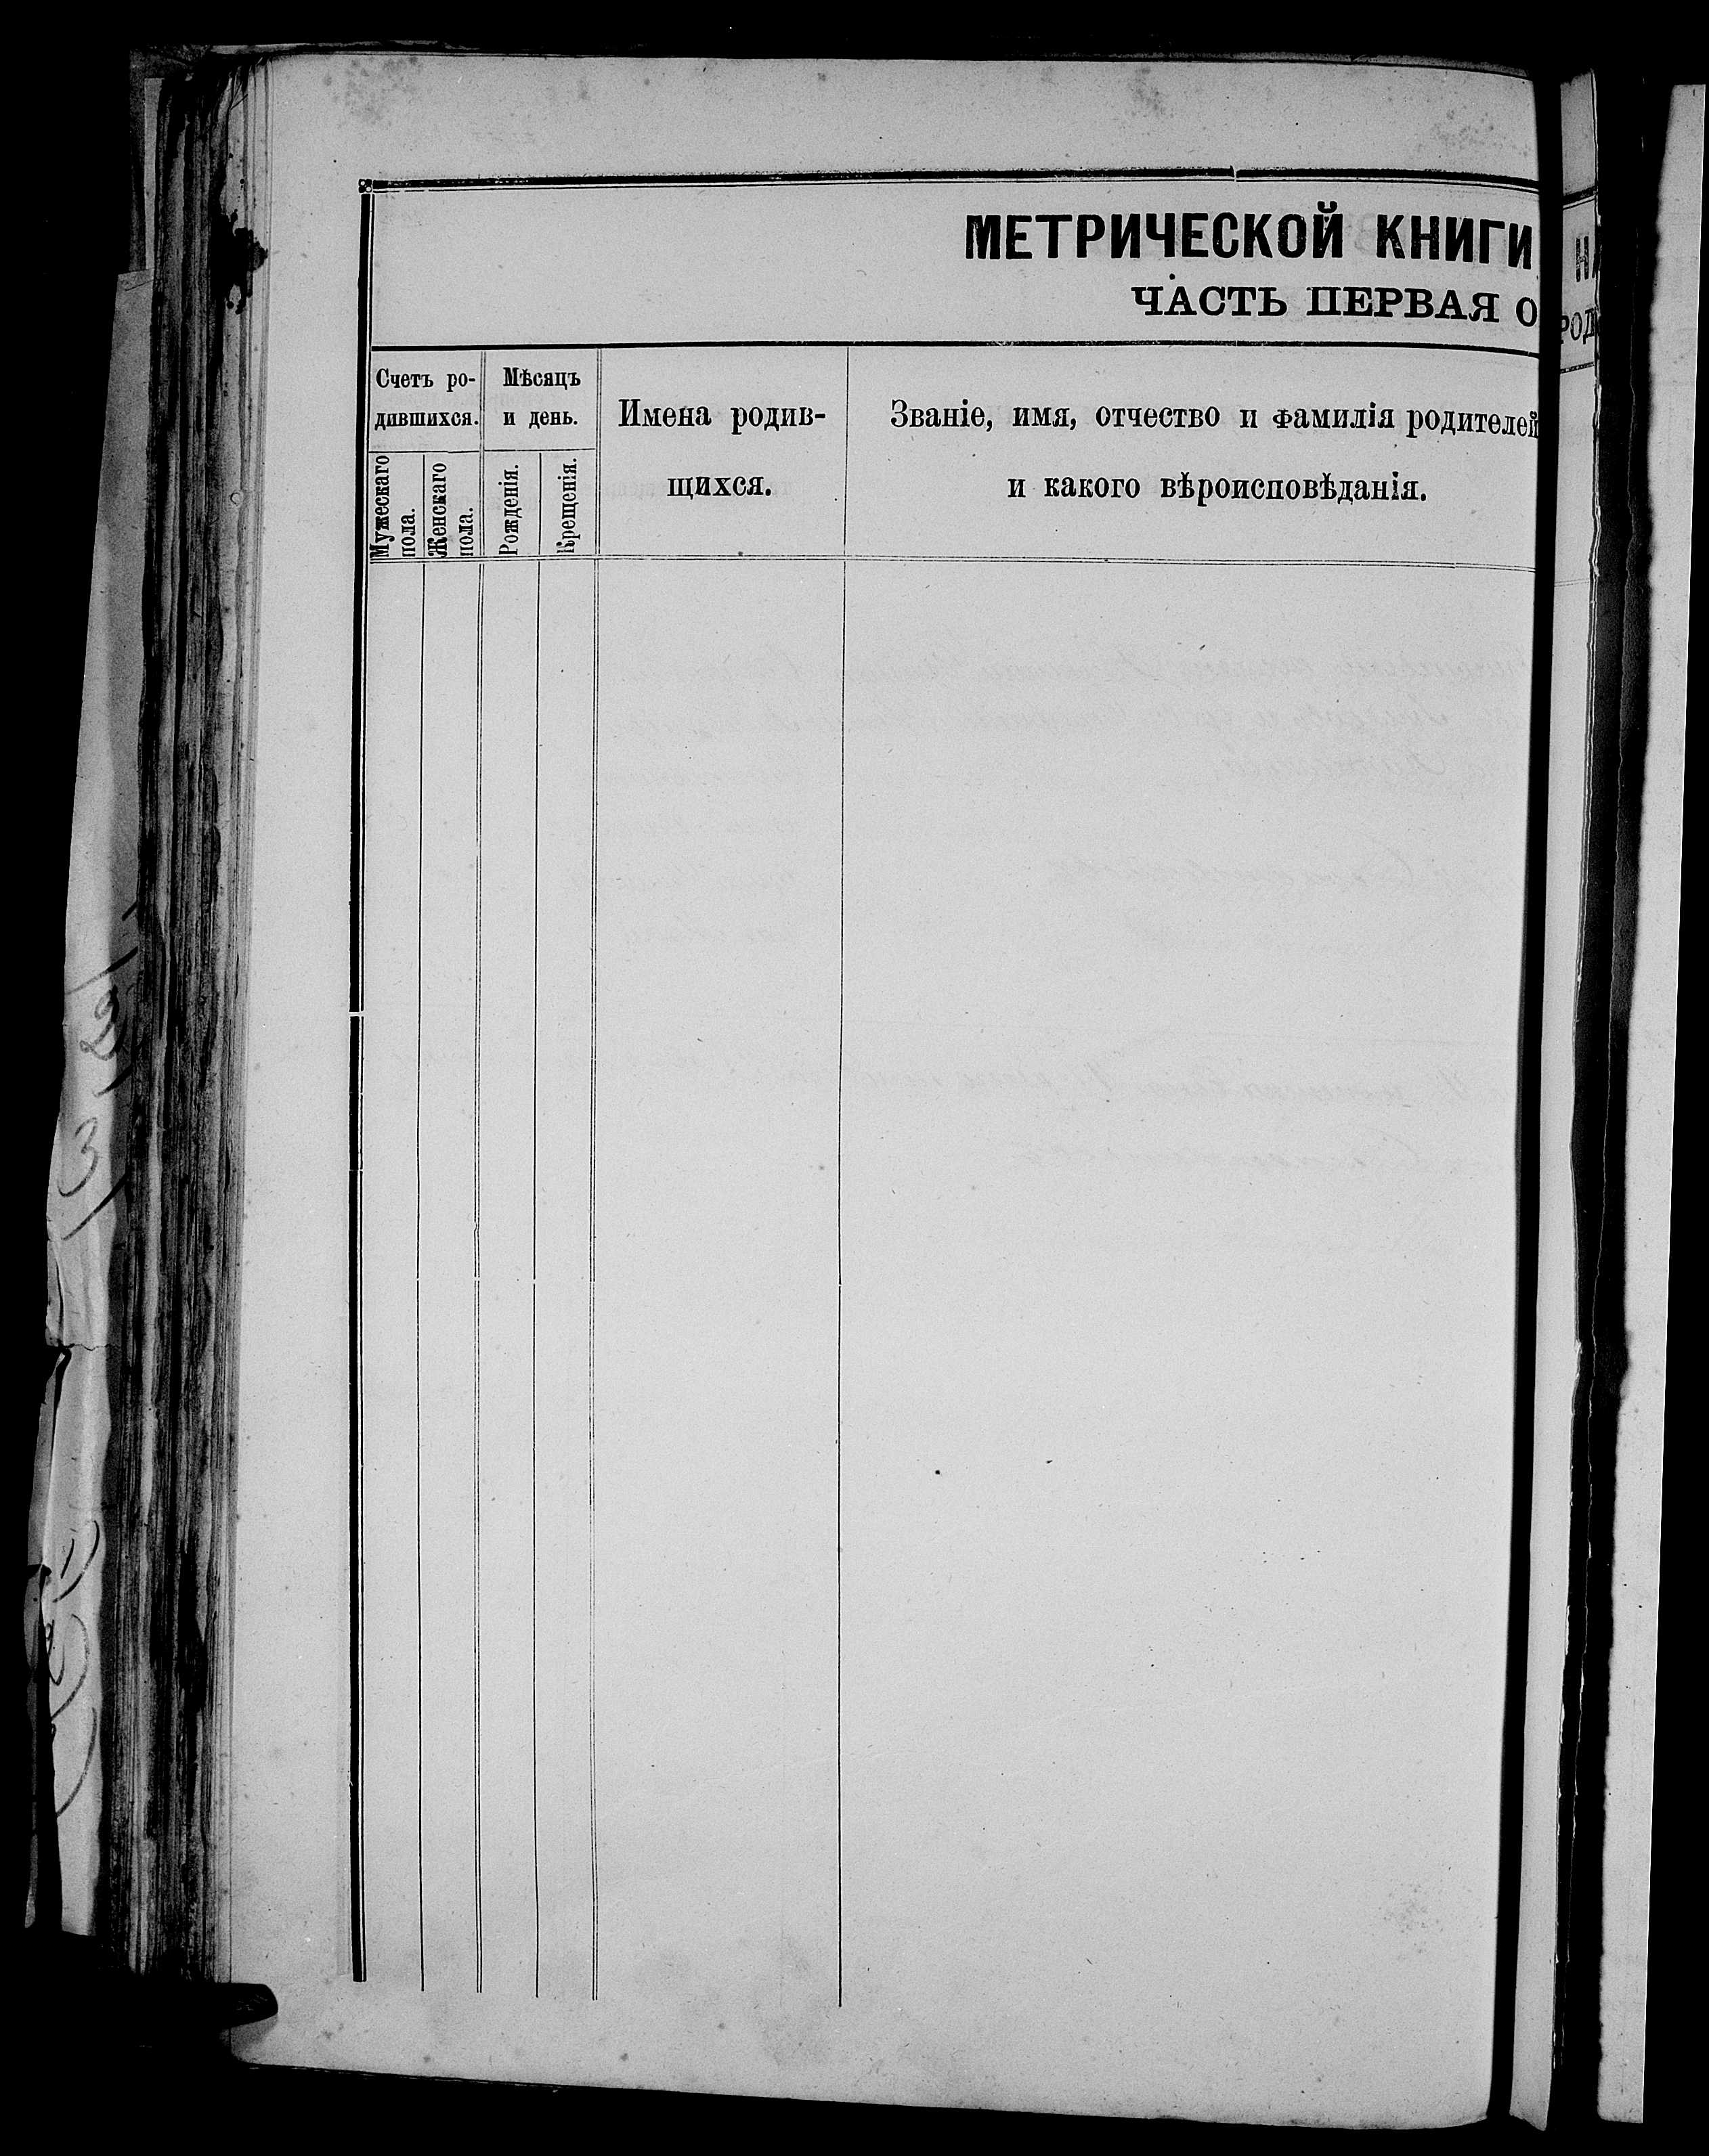 МЕТРИЧЕСКОЙ КНИГИ
ЧАСТЬ ПЕРВАЯ О
Счетъ ро-
дившихся.
Мужескаго
пола.
Женскаго
пола.
Мѣсяцъ
и день.
Рожденія.
Крещенія.
Имена родив-
щихся.
Званіе, имя, отчество и фамилія родителей
и какого вѣроисповѣданія.